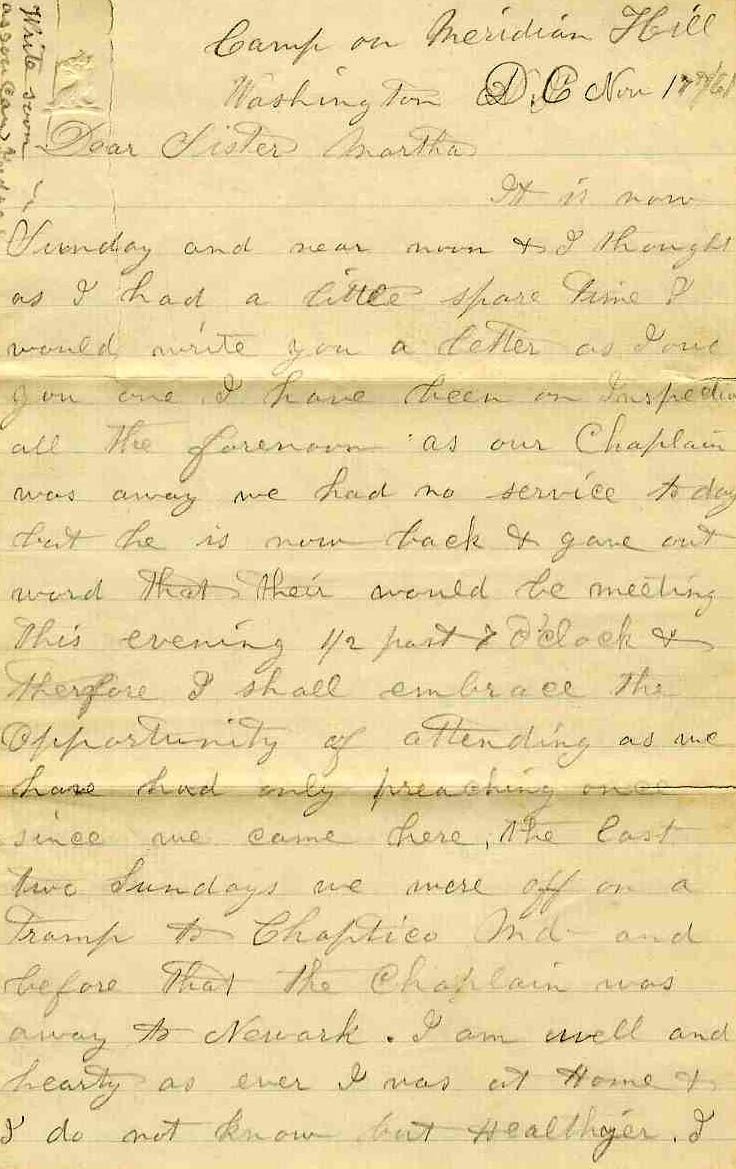 Camp on Meridian Hill
Washington D.C Nov 17th/61
Dear Sister Martha
It is now
Sunday and near noon & I thought
as I had a little spare time I
would write you a letter as I owe
you one I have been on Inspection
all the forenoon as our Chaplain
was away we had no service to day
but he is now back & gave out
word that their would be meeting
this evening 1/2 past 7 O'clock &
therefore I shall embrace the
Opportunity of attending as we
have had only preaching once
since we came here, the last
two Sundays we were off on a
Tramp to Chaptico Md and
before that the Chaplain was
away to Newark. I am well and
hearty as ever I was at Home &
I do not know but Healthyer. I
Write soon
as you can